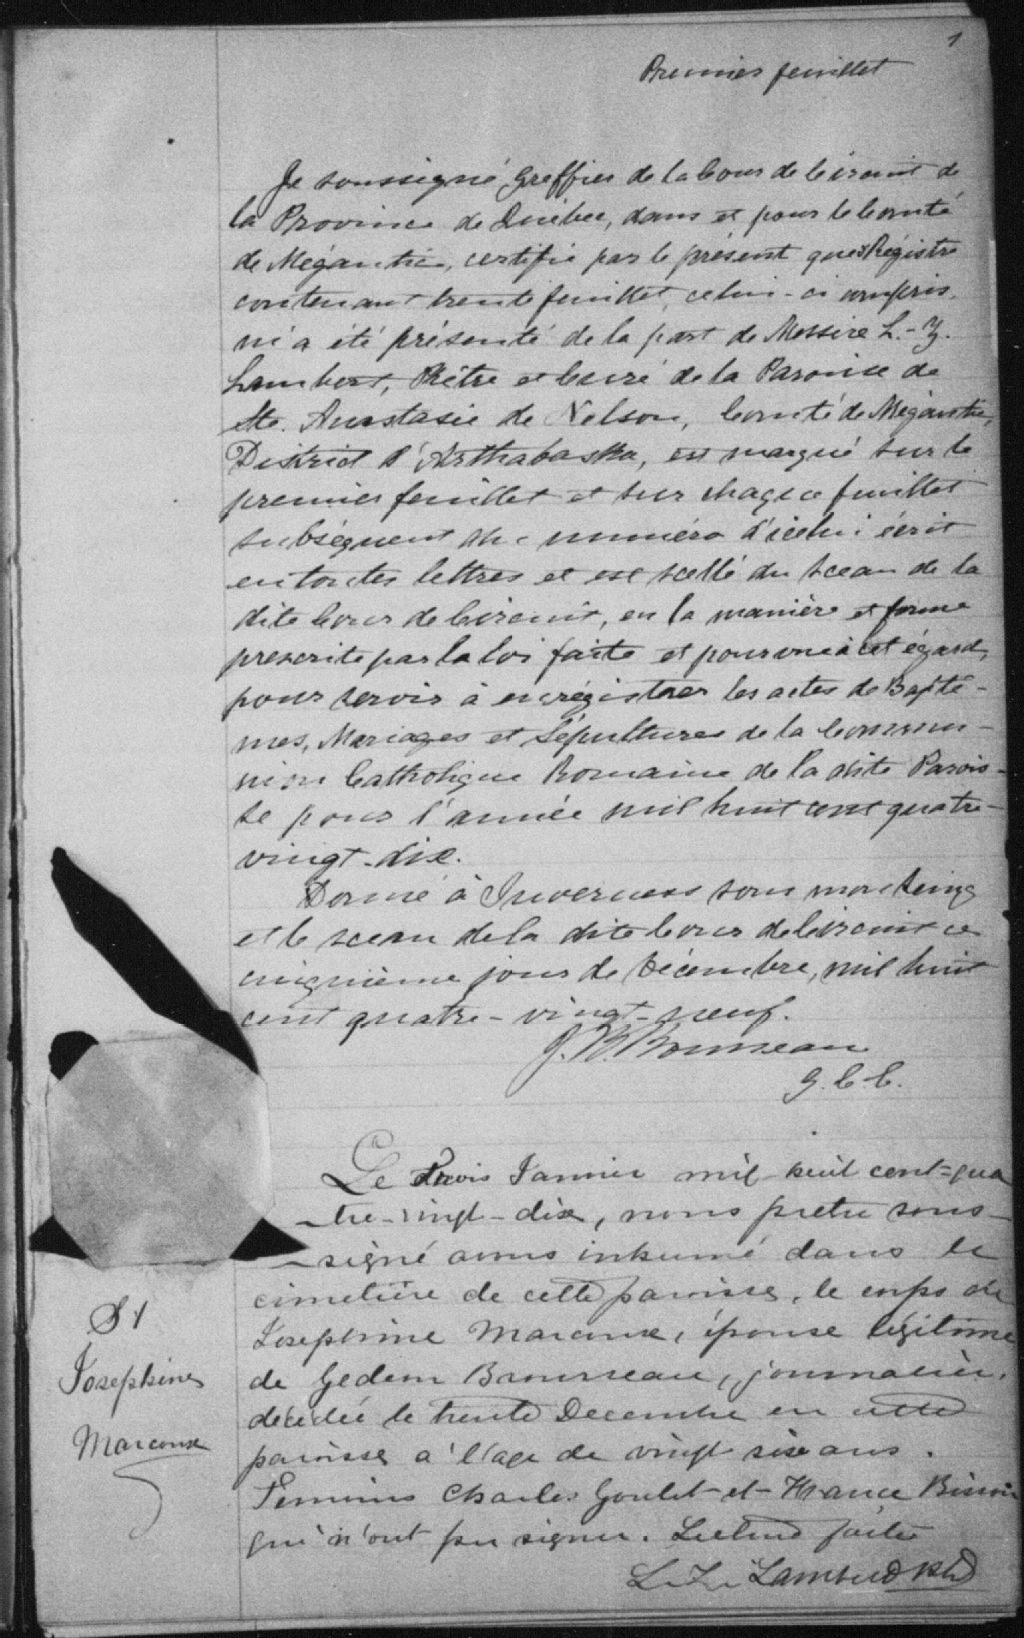 1
Premier feuillet
Je soussigné Greffier de la Cour de Circuit de
la Province de Québec, dans et pour le Comté
de Mégantic, certifie par le présent que Régistre
contenant trente feuillet, celui-ci compris,
m'a été présenté de la part de Messire L.-Z.
Lambert, Prêtre et Curé de la Paroisse de
Ste. Anastasie de Nelson, Comté de Mégantic,
District d'Arthabaska, est marqué sur le
premier feuillet et sur chaque feuillet
subséquent du numéro d'icelui écrit
en toutes lettres et est scellé du sceau de la
dite Cour de Circuit, en la manière et forme
prescrite par la loi faite et pourvue à cet égard,
pour servir à enrégistrer les actes de Baptê-
mes, Mariages et Sépultures de la Commu-
nion Catholique Romaine de la dite Parois-
se pour l'année mil huit cent quatre-
vingt-dix.
Donné à Inverness sous mon seing
et le sceau de la dite Cour de Circuit ce
cinquième jour de Décembre, mil huit
cent quatre-vingt-neuf.
J. B. Rousseau
G.C.C.
Le trois Janvier mil huit cent-qua
-tre-vingt-dix, nous pretre sous-
-signé avons inhumé dans le
cimetière de cette paroisse, le corps de
Josephine Marcoux, épouse légitime
de Gedeon Brousseau, journalier,
décédée le trente Decembre en cette
paroisse a l'age de vingt six ans.
Temoins Charles Goulet et France Bisson
qui n'ont pu signer. Lecture faite
L. Z. Lambert Ptr
S 1
Josephine
Marcoux